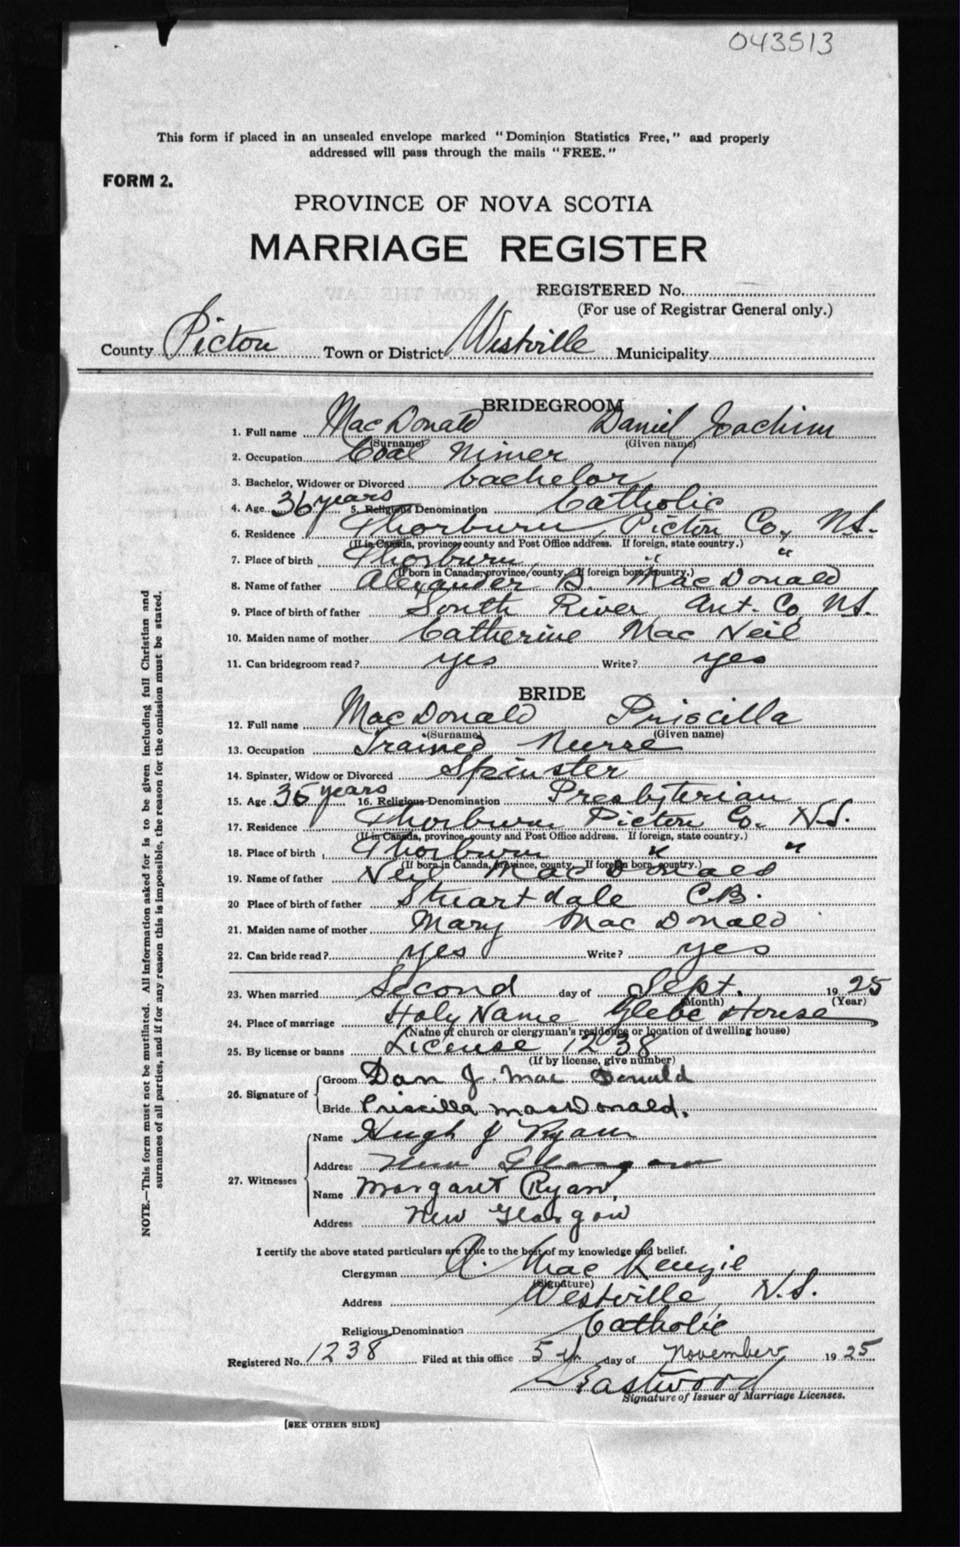 043513
This form if placed in an unsealed envelope marked "Dominion Statistics Free," and properly
addressed will pass through the mails "FREE."
FORM 2.
PROVINCE OF NOVA SCOTIA
MARRIAGE REGISTER
REGISTERED No.
(For use of Registrar General only.)
County Pictou Town or District Westville Municipality
BRIDEGROOM
1. Full name MacDonald Daniel Joachim
(Surname) (Given name)
2. Occupation Coal Miner
3. Bachelor, Widower or Divorced bachelor
4. Age 36 years 5. Religious Denomination Catholic
6. Residence Thorburn Pictou Co., N.S.
(If in Canada, province, county and Post Office address. If foreign, state country.)
7. Place of birth Thorburn " "
(If born in Canada, province, county. If foreign born, country.)
8. Name of father Alexander B. MacDonald
9. Place of birth of father South River Ant. Co, N.S.
10. Maiden name of mother Catherine MacNeil
11. Can bridegroom read? yes Write? yes
BRIDE
12. Full name MacDonald Priscilla
(Surname) (Given name)
13. Occupation Trained Nurse
14. Spinster, Widow or Divorced Spinster
15. Age 35 years 16. Religious Denomination Presbyterian
17. Residence Thorburn Pictou Co. N.S.
(If in Canada, province, county and Post Office address. If foreign, state country.)
18. Place of birth Thorburn " "
(If born in Canada, province, county. If foreign born, country.)
19. Name of father Neil MacDonald
20 Place of birth of father Stuartdale C.B.
21. Maiden name of mother Mary MacDonald
22. Can bride read? yes Write? yes
23. When married Second day of Sept. 1925
(Month) (Year)
24. Place of marriage Holy Name Glebe House
(Name of church or clergyman's residence or location of dwelling house)
25. By license or banns License 1238
(If by license, give number)
26. Signature of Groom Dan J. MacDonald
Bride Priscilla MacDonald.
27. Witnesses Name Hugh J Ryan
Address New Glasgow
Name Margaret Ryan,
Address New Glasgow
I certify the above stated particulars are true to the best of my knowledge and belief.
Clergyman R. MacKenzie
(Signature)
Address Westville, N.S.
Religious Denomination Catholic
Registered No. 1238 Filed at this office 5th day of November 1925
Eastwood
Signature of Issuer of Marriage Licenses.
[SEE OTHER SIDE]
NOTE.—This form must not be mutilated. All information asked for is to be given including full Christian and
surnames of all parties, and if for any reason this is impossible, the reason for the omission must be stated.